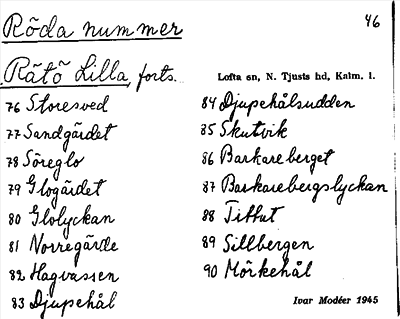 Röda nummer
46
Rätö Lilla, forts.
Lofta sn, N. Tjusts hd, Kalm. l.
76 Storesved
77 Sandgärdet
78 Söreglo
79 Glogärdet
80 Glolyckan
81 Norregärde
82 Hagvassen
83 Djupehål
84 Djupehålsudden
85 Skutvik
86 Barkareberget
87 Barkarebergslyckan
88 Tittut
89 Sillbergen
90 Mörkehål
Ivar Modéer 1945